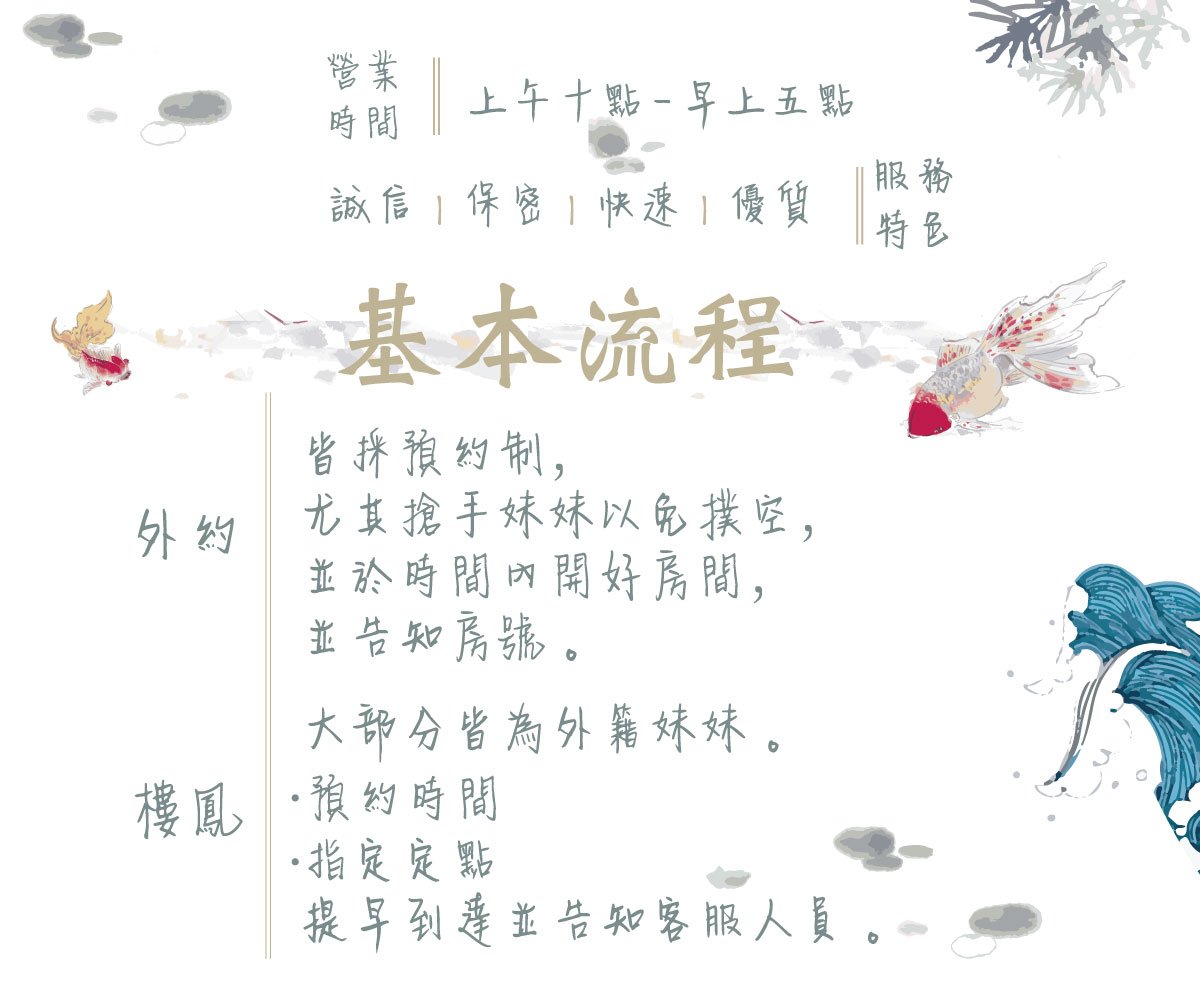 營業
時間
上午十點-早上五點
誠信 | 保密 | 快速 | 優質
服務
特色
基本流程
外約
皆採預約制,
尤其搶手妹妹以免撲空,
並於時間內開好房間,
並告知房號。
樓鳳
大部分皆為外籍妹妹。
·預約時間
·指定定點
提早到達並告知客服人員。